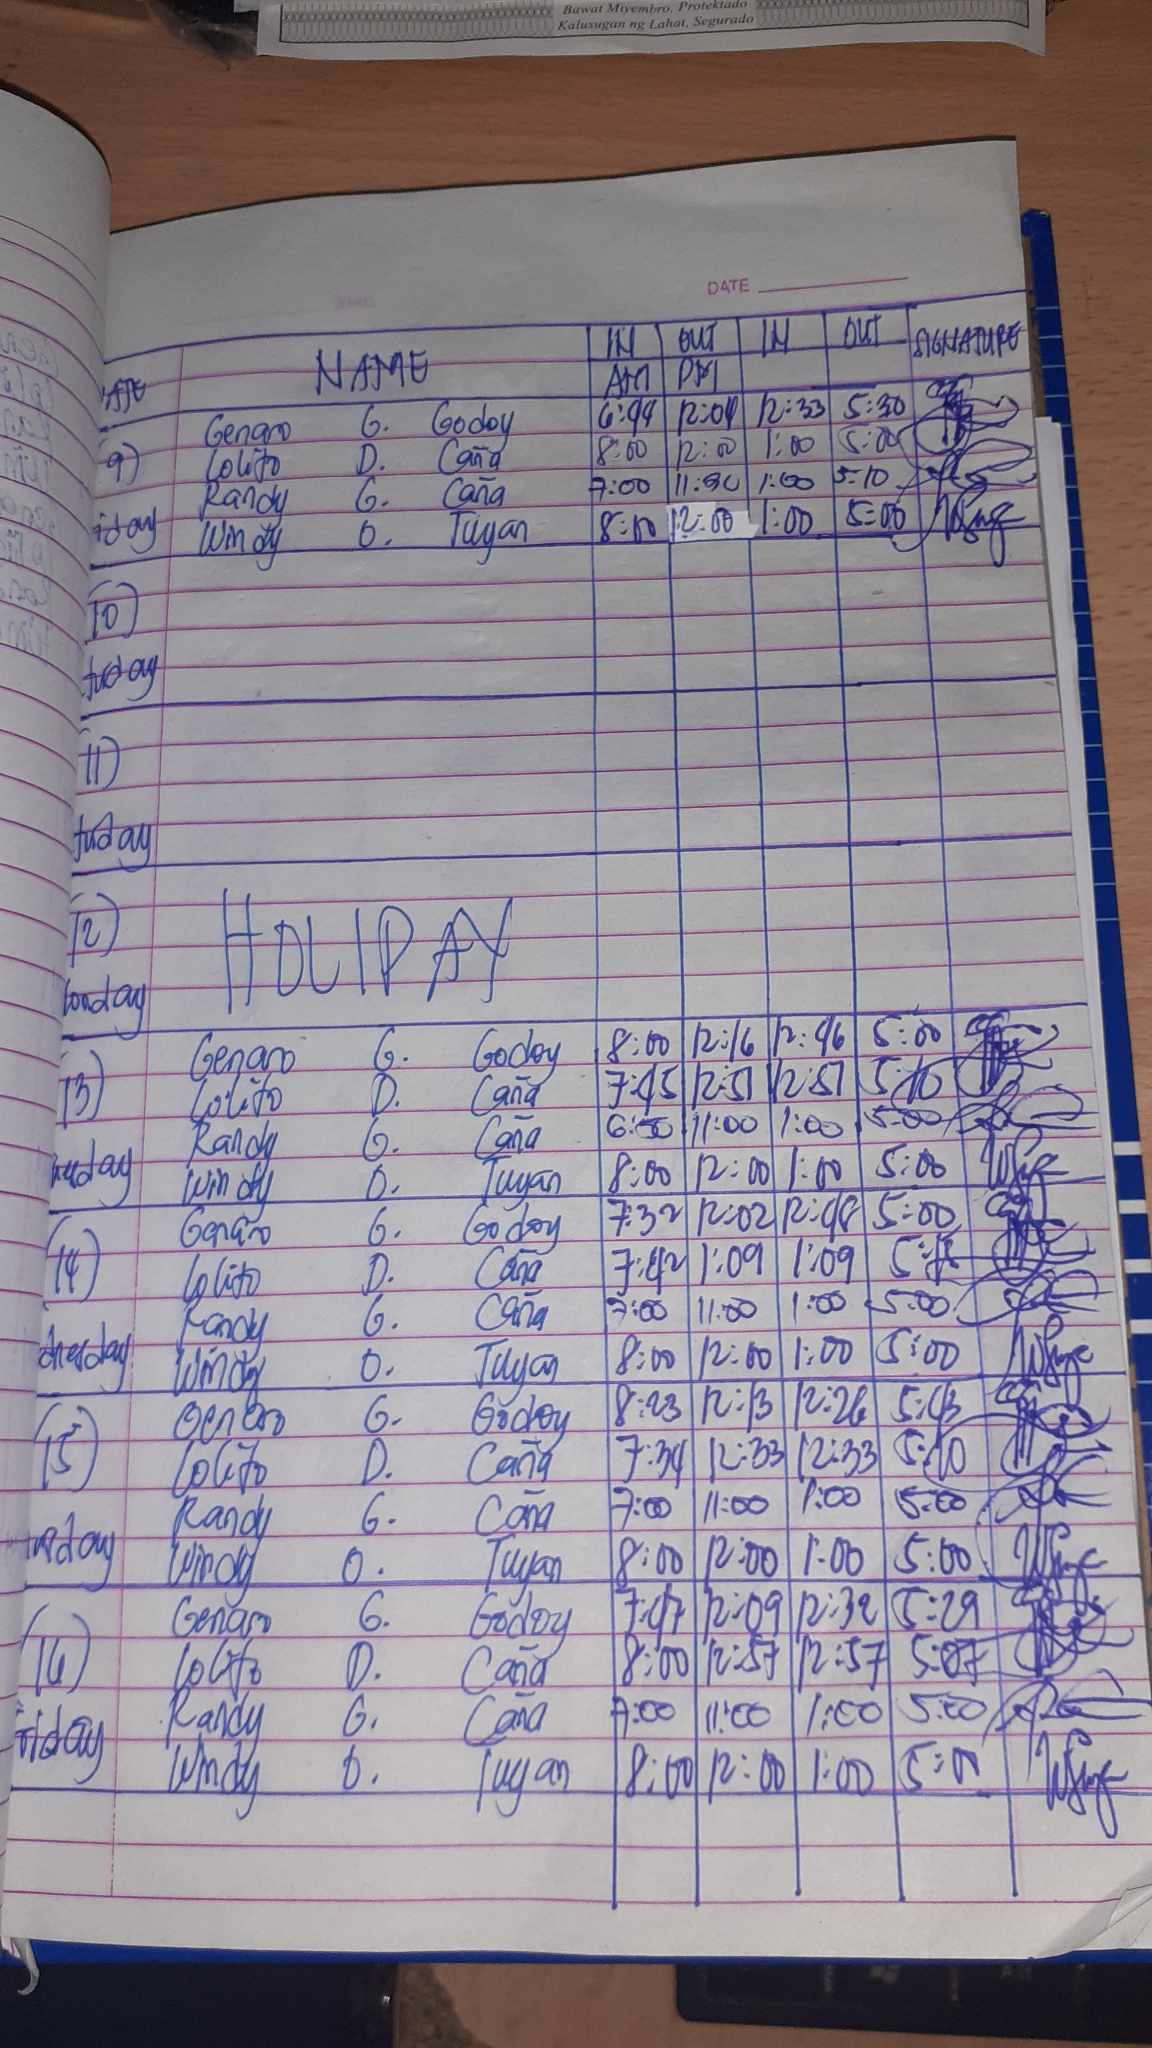 Bawat Miyembro, Protektado
Kalusugan ng Lahat, Segurado
DATE
ATE NAME IN OUT IN OUT SIGNATURE
AM PM
Genaro G. Godoy 6:44 12:04 12:33 5:30
9) Lolito D. Caña 8:00 12:00 1:00 5:00
Randy G. Caña 7:00 11:30 1:00 5:10
iday Windy O. Tuyan 8:00 12:00 1:00 5:00
10)
turday
11)
turday
12) HOLIDAY
onday
Genaro G. Godoy 8:00 12:16 12:46 5:00
13) Lolito D. Caña 7:45 12:51 12:51 5:10
Randy G. Caña 6:50 11:00 1:00 5:00
uesday Windy O. Tuyan 8:00 12:00 1:00 5:00
Genaro G. Godoy 7:32 12:02 12:48 5:00
(14) Lolito D. Caña 7:42 1:09 1:09
Randy G. Caña 7:00 11:00 1:00 5:00
dnesday Windy O. Tuyan 8:00 12:00 1:00 5:00
Genaro G. Godoy 8:23 12:13 12:26 5:43
(15) Lolito D. Caña 7:34 12:33 12:33 5:10
Randy G. Caña 7:00 11:00 1:00 5:00
ursday Windy O. Tuyan 8:00 12:00 1:00 5:00
Genaro G. Godoy 7:47 12:09 12:32 5:29
(16) Lolito D. Caña 8:00 12:57 12:57 5:07
Randy G. Caña 7:00 11:00 1:00 5:00
riday Windy O. Tuyan 8:00 12:00 1:00 5:00